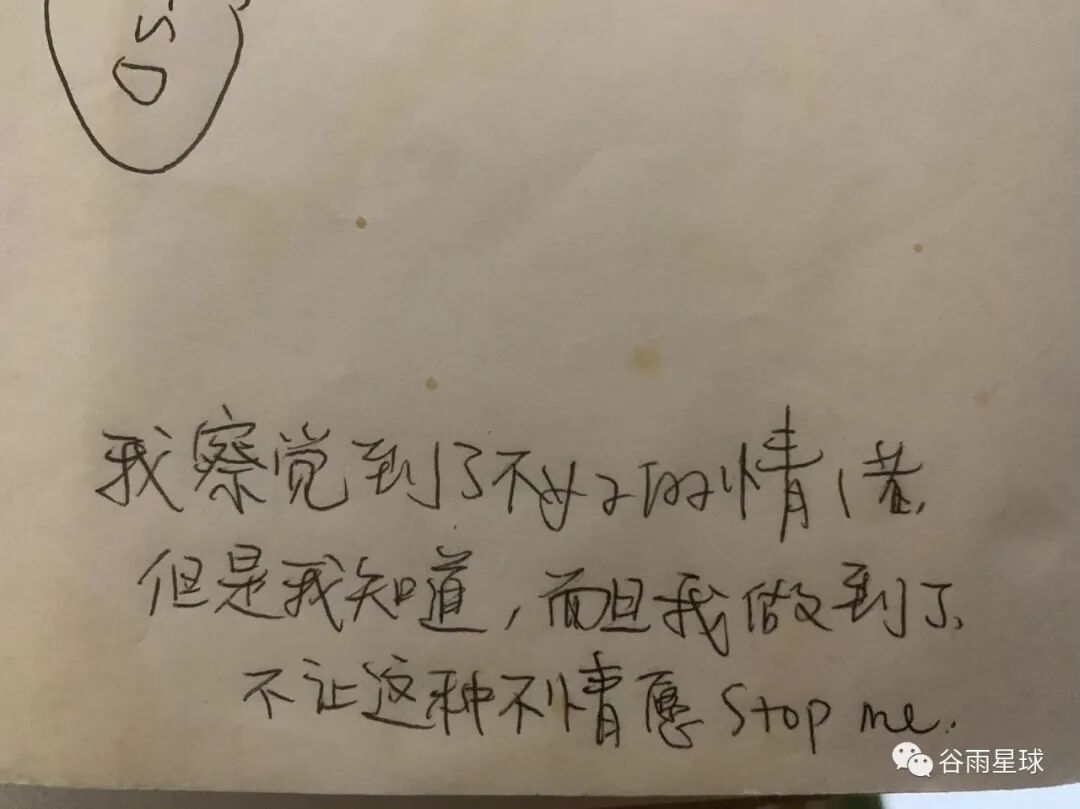 我察觉到了不好的情绪,
但是我知道，而且我做到了、
不让这种不情愿 Stop me.
谷雨星球